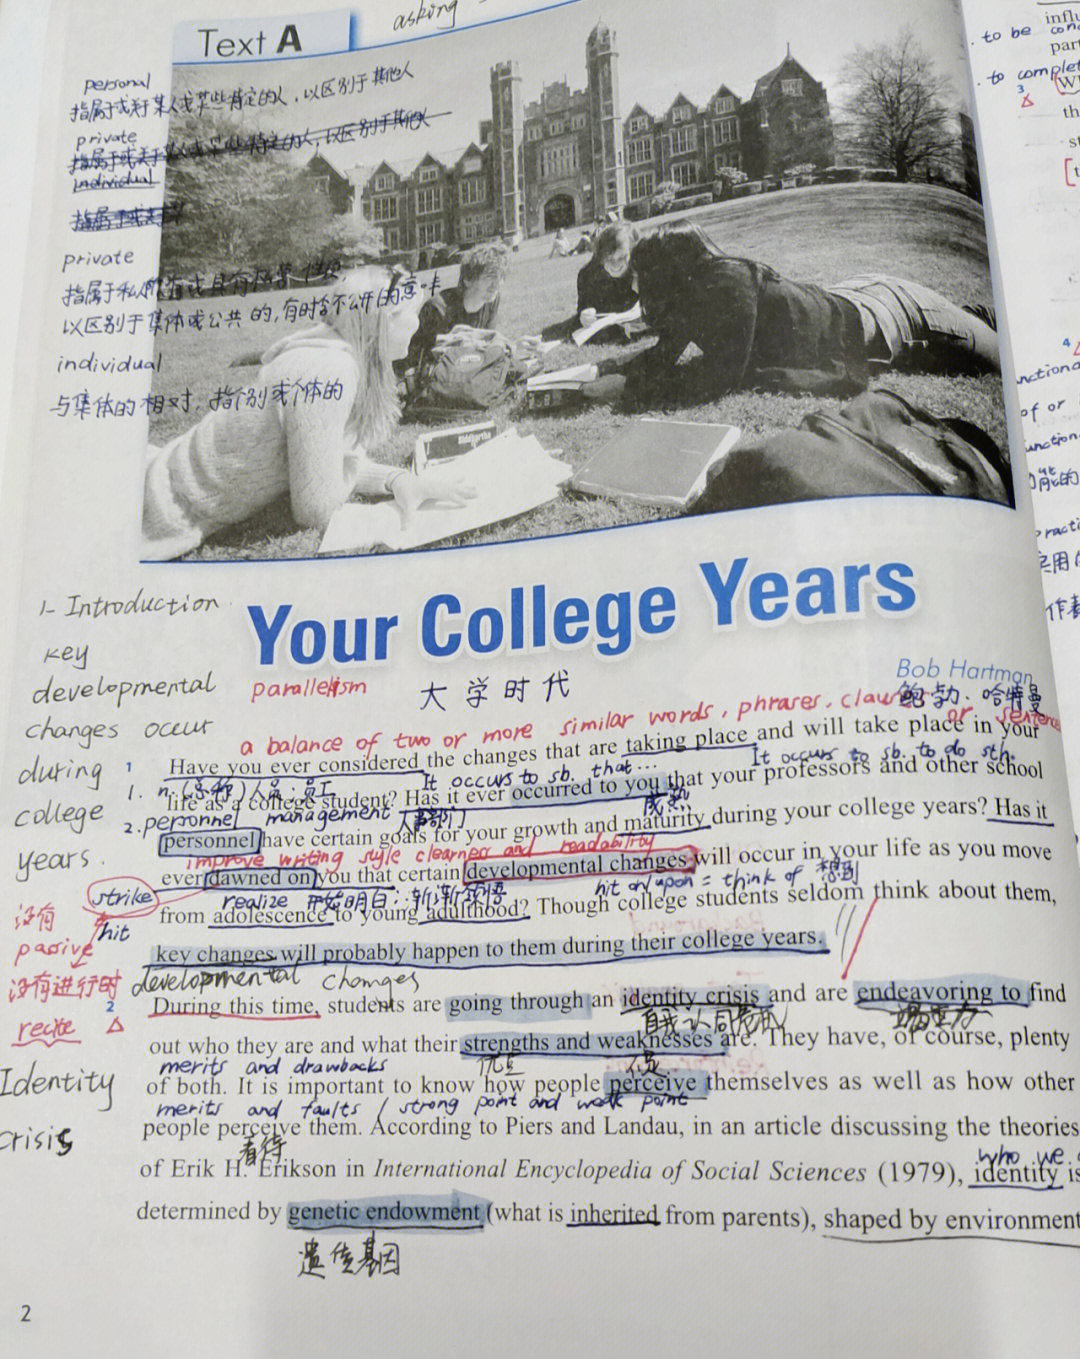 asking
Text A
personal
指属于或关于某人或某些肯定的人，以区别于其他人
private
指属于或关于某人或某些特定的人，以区别于其他人
individual
指属于或关于
private
指属于私人所有或具有私营性
以区别于集体或公共的，有时含不公开的意味
individual
与集体的相对，指个别或个体的
1- Introduction
key
developmental
changes occur
during
college
years.
Your College Years
Bob Hartman
鲍勃·哈特曼
parallelism
大学时代
a balance of two or more similar words, phrases, clauses or sentence
1 Have you ever considered the changes that are taking place and will take place in your
It occurs to sb. that...
It occurs to sb. to do sth.
1. n.(总称)人员；员工
life as a college student? Has it ever occurred to you that your professors and other school
2. personnel management 人事部门
成熟
personnel have certain goals for your growth and maturity during your college years? Has it
improve writing style clearness and readability
ever dawned on you that certain developmental changes will occur in your life as you move
strike
hit
realize 开始明白；渐渐领悟
hit on/upon = think of 想到
from adolescence to young adulthood? Though college students seldom think about them,
key changes will probably happen to them during their college years.
没有
passive
没有进行时
recite
developmental changes
2 During this time, students are going through an identity crisis and are endeavoring to find
自我认同危机
竭尽力
out who they are and what their strengths and weaknesses are. They have, of course, plenty
merits and drawbacks
优点
不足
of both. It is important to know how people perceive themselves as well as how other
merits and faults / strong point and weak point
people perceive them. According to Piers and Landau, in an article discussing the theories
看待
who we
of Erik H. Erikson in International Encyclopedia of Social Sciences (1979), identity is
determined by genetic endowment (what is inherited from parents), shaped by environment
遗传基因
Identity
crisis
2
to be
to complet
influ
part
W
th
st
nctiona
of or
unction
能的
practi
实用
作者